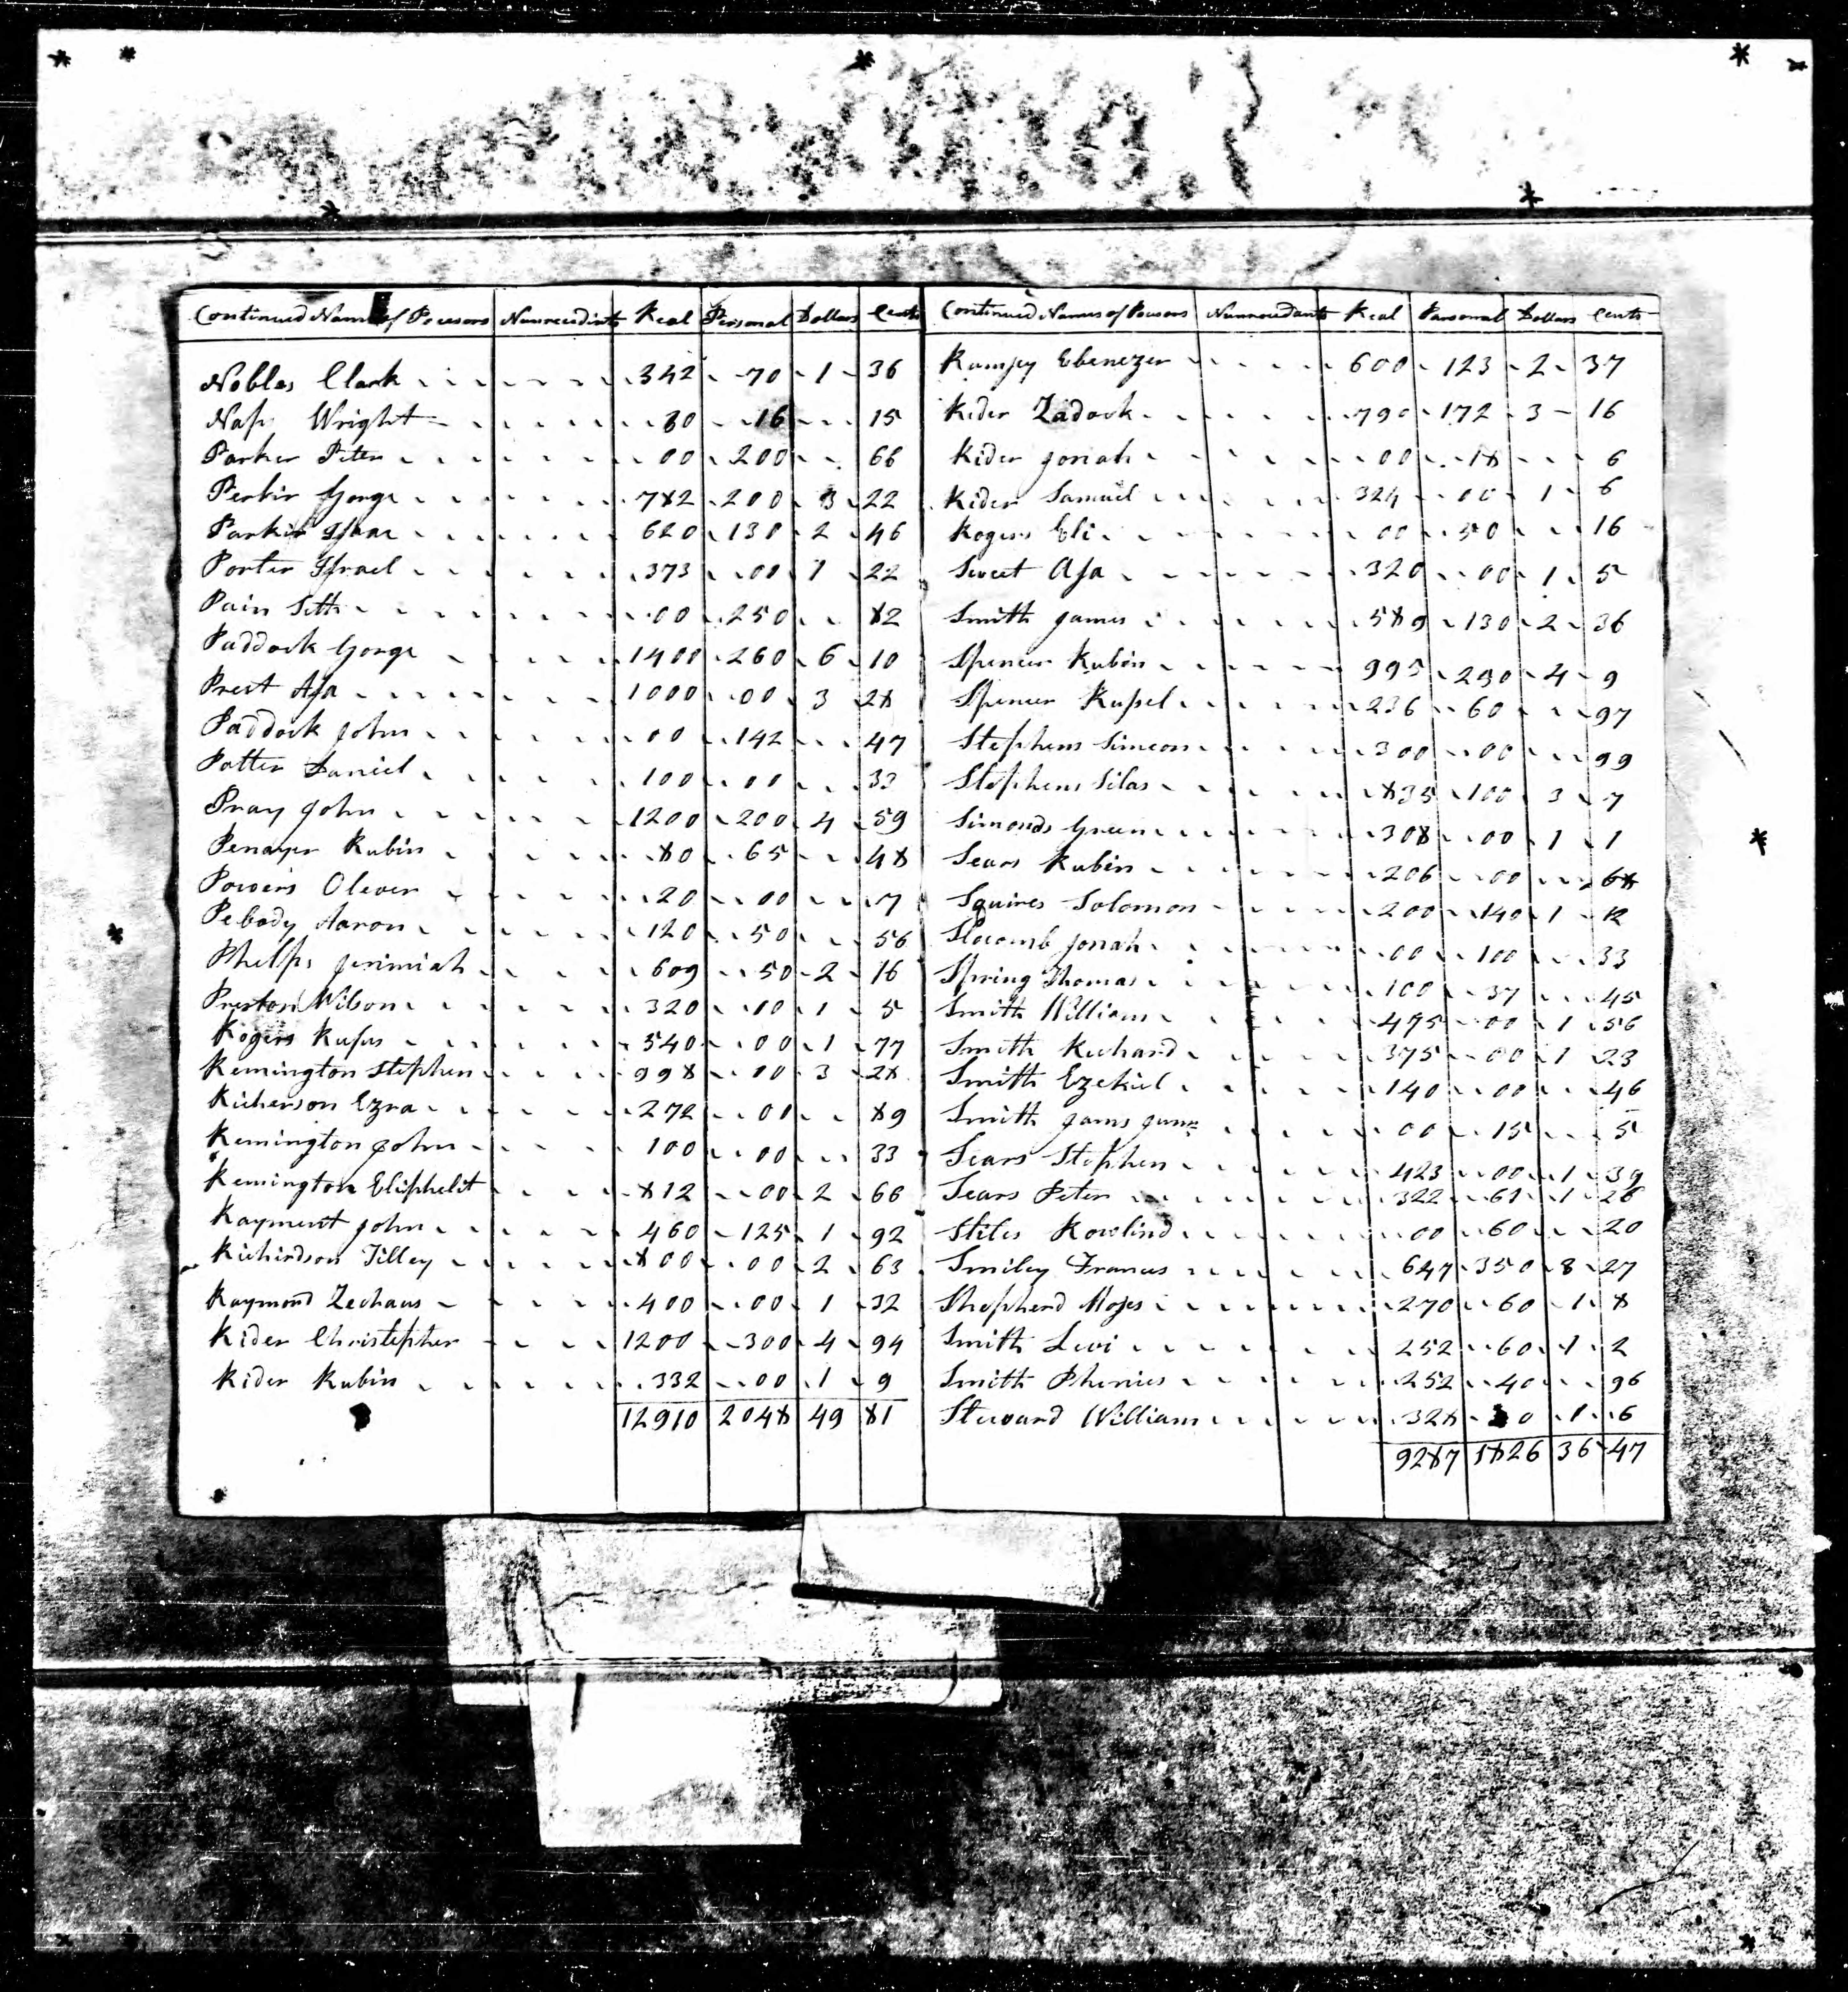 Continued Names of Persons Nunresidints Real Personal Dollars Cents
Nobles Clark 342 70 1 36
Nass Wright 30 16 15
Parker Peter 00 200 66
Perkir Gorge 782 200 3 22
Parkir Isaac 620 130 2 46
Porter Israel 373 00 1 22
Pain Seth 00 250 82
Paddock Gorge 1400 260 6 10
Prest Asa 1000 00 3 28
Paddock John 00 142 47
Potter Daniel 100 00 33
Pray John 1200 200 4 59
Penayer Rubin 80 65 48
Powers Olever 20 00 7
Pebody Aaron 120 50 56
Phelps Jerimiah 609 50 2 16
Preston Wilson 320 00 1 5
Rogers Rufus 540 00 1 77
Remington Stephen 998 00 3 28
Richerson Ezra 272 00 89
Remington John 100 00 33
Remington Eliphelit 812 00 2 66
Rayment John 460 125 1 92
Richirdson Tilley 800 00 2 63
Raymond Zechaus 400 00 1 32
Rider Christepher 1200 300 4 94
Rider Rubin 332 00 1 9
12910 2048 49 81
Continued Names of Persons Nunresedants Real Parsonal Dollars Cents
Ramsey Ebenezer 600 123 2 37
Rider Zadock 790 172 3 16
Rider Josiah 00 18 6
Rider Samuel 324 00 1 6
Rogers Eli 00 50 16
Sweet Asa 320 00 1 5
Smith James 589 130 2 36
Spencer Rubin 995 230 4 9
Spencer Russel 236 60 97
Stephens Simeon 300 00 99
Stephens Silas 835 100 3 7
Simonds Green 308 00 1 1
Sears Rubin 206 00 68
Squires Solomon 200 140 1 12
Slocomb Josiah 00 100 33
Spring Thomas 100 37 45
Smith William 475 00 1 56
Smith Richard 375 00 1 23
Smith Ezekiel 140 00 46
Smith Jams Junr 00 15 5
Sears Stephen 423 00 1 39
Sears Peter 322 61 1 26
Stiles Rowlind 00 60 20
Smiley Francus 647 350 8 27
Shepherd Moses 270 60 1 8
Smith Levi 252 60 1 2
Smith Phenies 252 40 96
Steward William 328 0 1 6
9287 1826 36 47